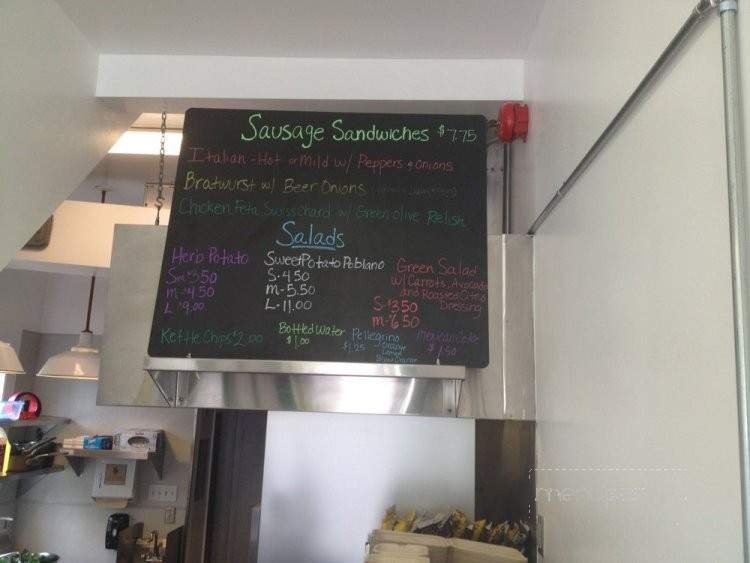 Sausage Sandwiches $7.75
Italian - Hot or Mild w/ Peppers & Onions
Bratwurst w/ Beer Onions
Chicken Feta Swiss Chard w/ Green olive Relish
Salads
Herb Potato
Sm $3.50
m - $4.50
L $9.00
Sweet Potato Poblano
S. 4.50
m - 5.50
L - 11.00
Green Salad
w/ Carrots, Avocado
and Roasted Citrus
Dressing
S - $3.50
m - 6.50
Kettle Chips $2.00
Bottled Water
$1.00
Pellegrino
$1.25
Orange
Lemon
Blood Orange
Mexican Coke
$2.50
menupix